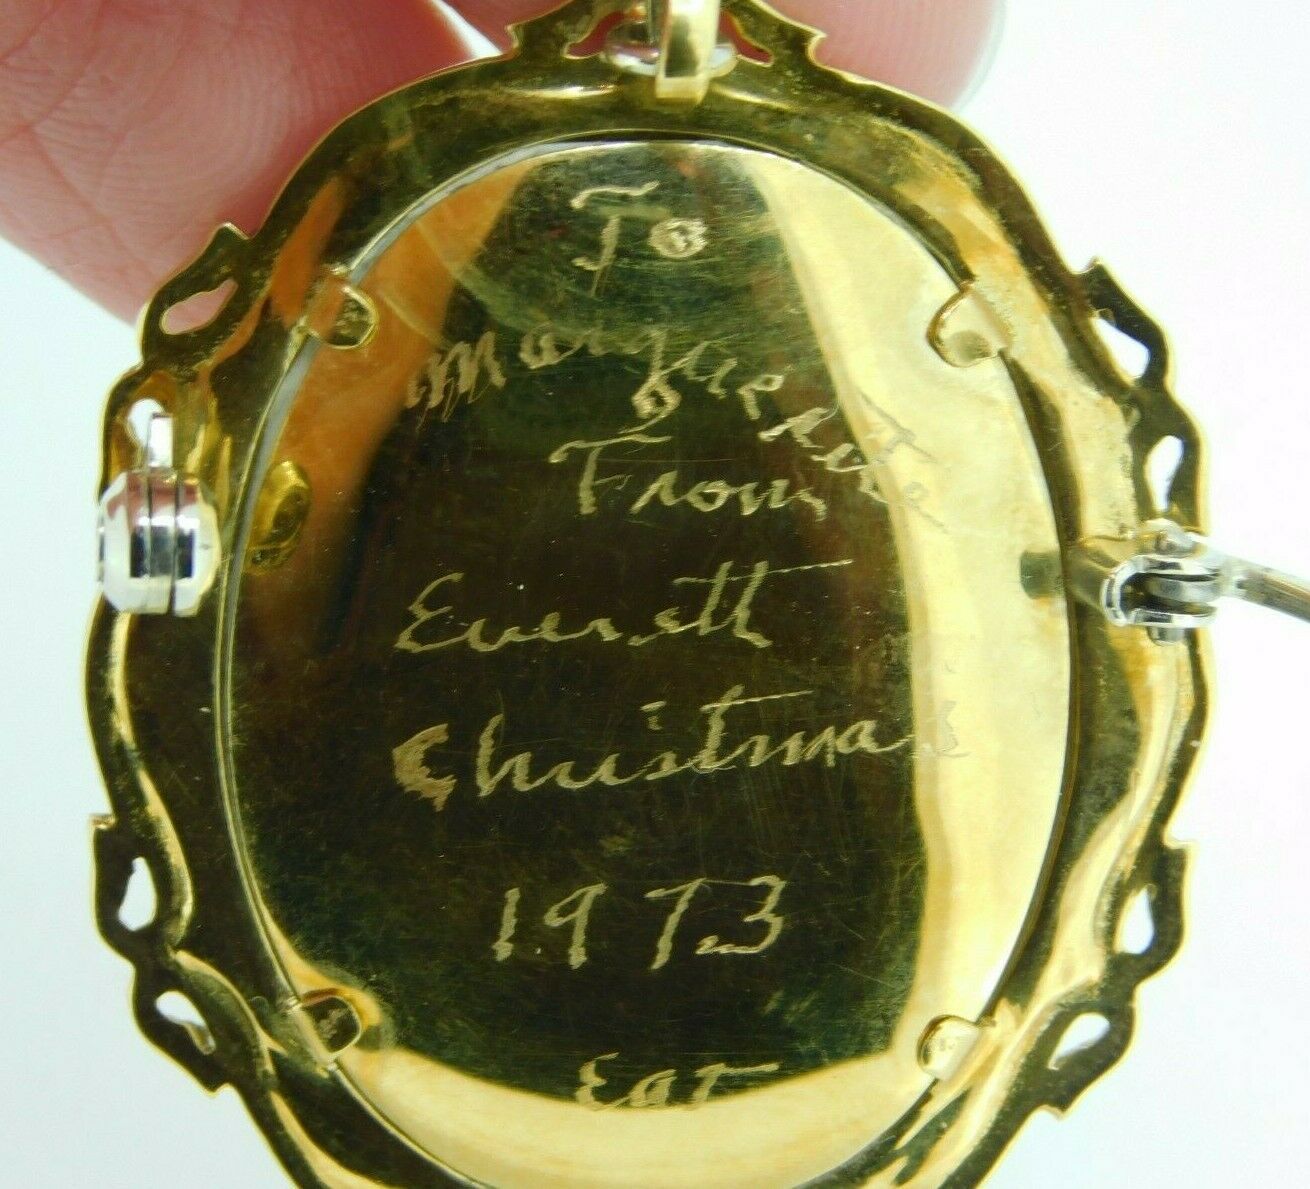 To
Marguerite
From
Everett
Christmas
1973